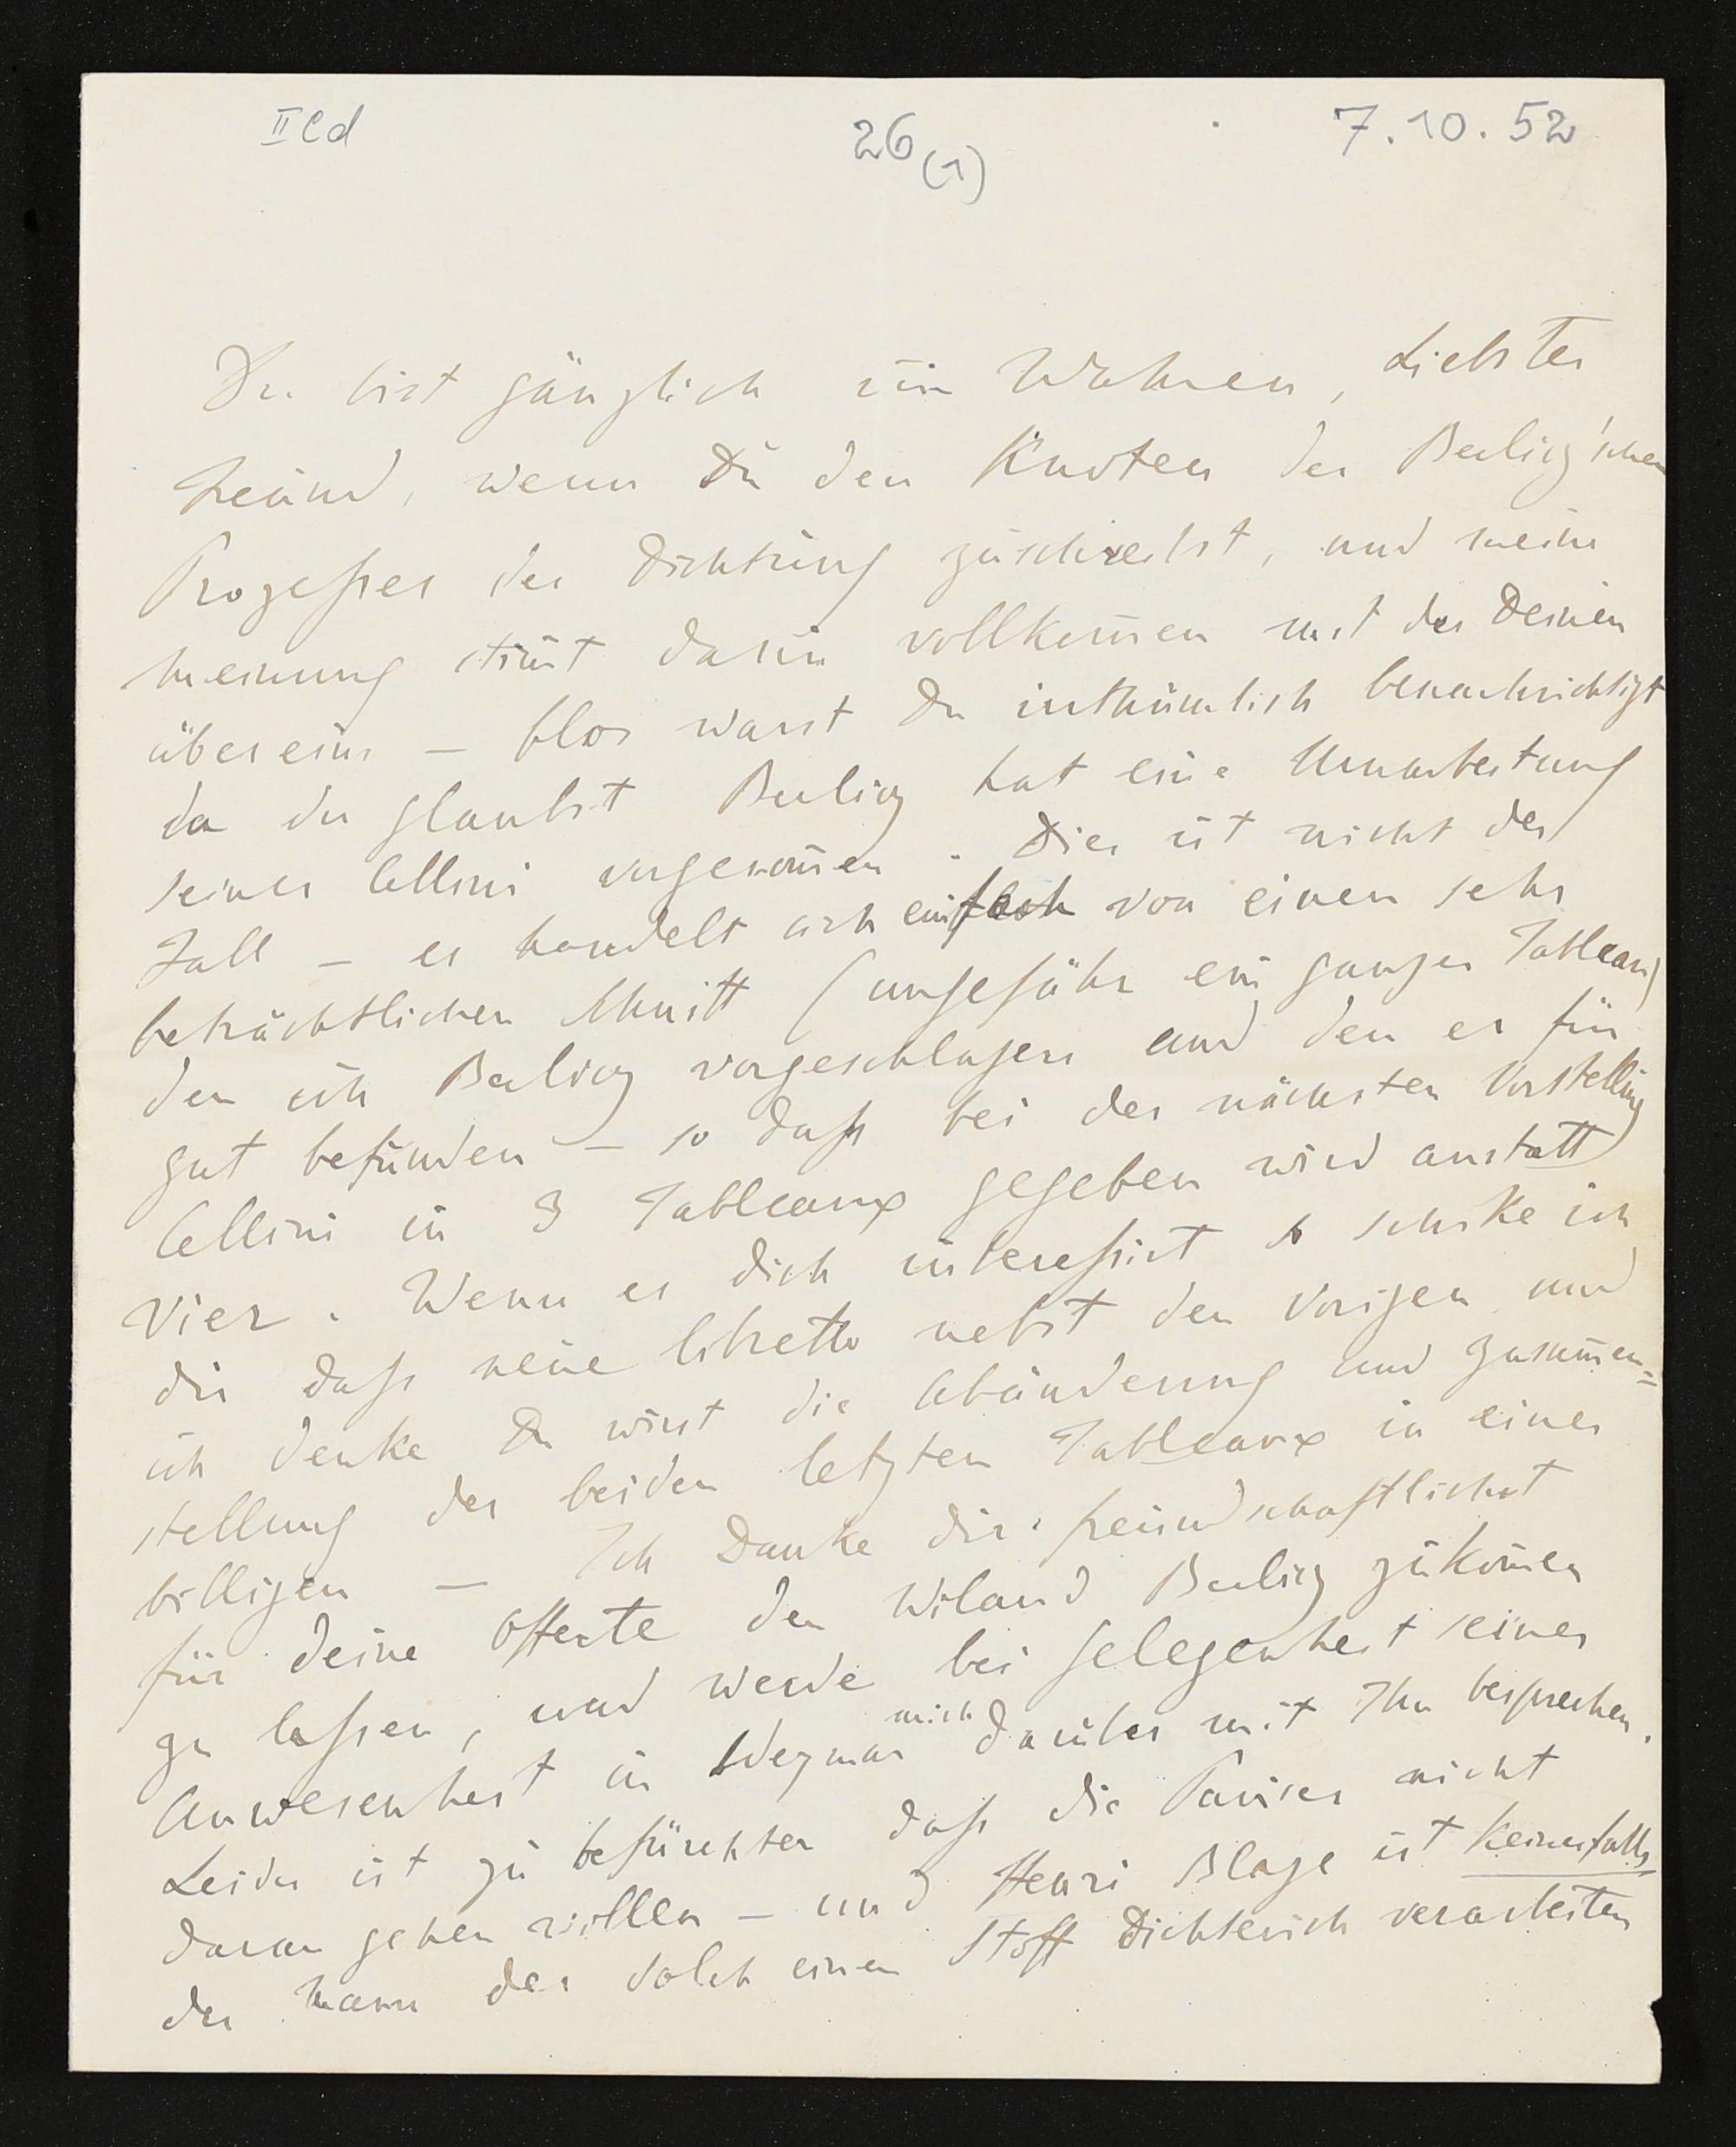 II Cd
26 (1)
7.10.52
Du bist gänzlich im Wahren, Liebster
Freund, wenn Du den Knoten des Berlioz'schen
Prozeßes der Dichtung zuschreibst, und meine
Meinung stimt darin vollkomen mit der Deinen
überein – blos warst Du irrthümlich benachrichtigt
da du glaubst Berlioz hat eine Umarbeitung
seines Cellini vorgenomen. Dies ist nicht der
Fall – es handelt sich einfach von einen sehr
beträchtlichen Schnitt (ungefähr ein ganzes Tableau)
den ich Berlioz vorgeschlagen und den er für
gut befunden – so daß bei der nächsten Vorstellung
Cellini in 3 Tableaux gegeben wird anstatt
Vier. Wenn es dich interessirt so schike ich
dir daß neue libretto nebst den Vorigen und
ich denke Du wirst die Abänderung und Zusamen=
stellung der beiden letzten Tableaux in eines
billigen – Ich Danke dir freundschaftlichst
für deine Offerte den Wiland Berlioz zukomen
zu laßen, und werde bei Gelegenheit seiner
Anwesenheit in Weymar mich darüber mit Ihn besprechen.
Leider ist zu befürchten daß die Pariser nicht
daran gehen willen – und Henri Blaze ist keinesfalls
der Mann der solch einen Stoff Dichterisch verarbeiten